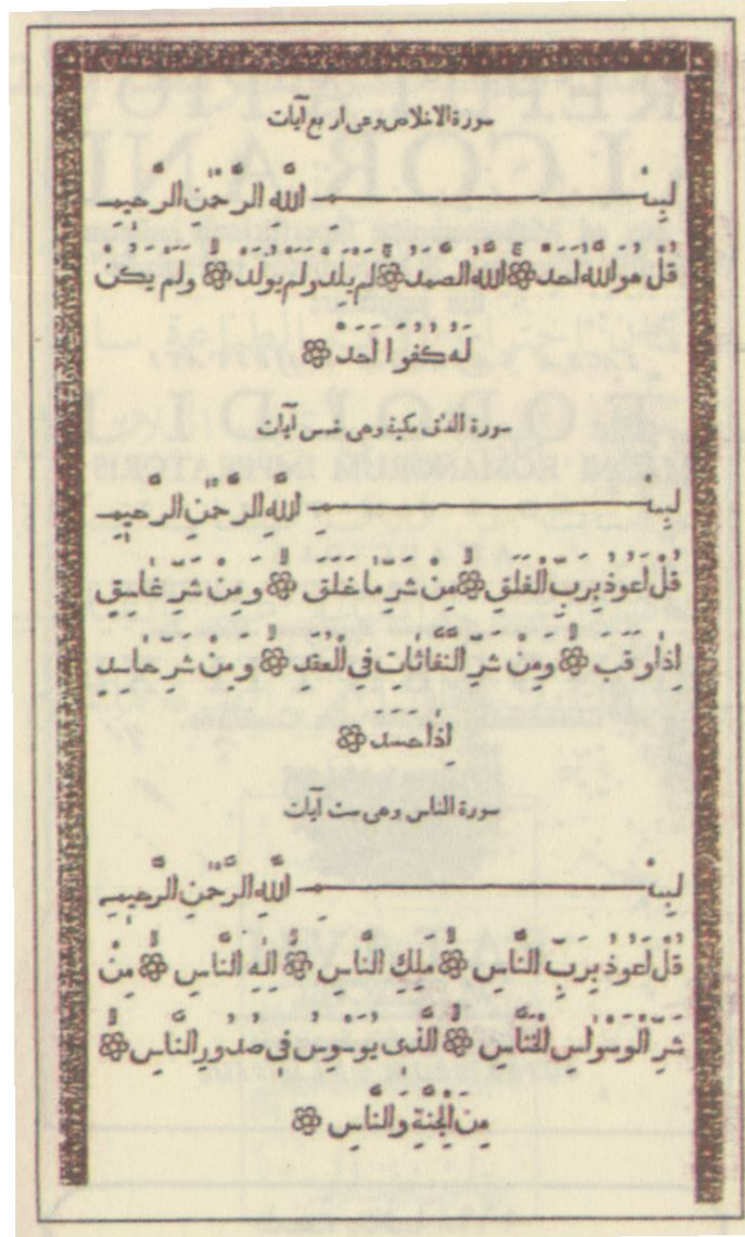 سورة الاخلاص وهى اربع آيات
بسم الله الرحمن الرحيم
قل هو الله احد ۞ الله الصمد ۞ لم يلد ولم يولد ۞ ولم يكن
له كفوا احد ۞
سورة الفلق مكية وهى خمس آيات
بسم الله الرحمن الرحيم
قل اعوذ برب الفلق ۞ من شر ما خلق ۞ ومن شر غاسق
اذا وقب ۞ ومن شر النفاثات في العقد ۞ ومن شر حاسد
اذا حسد ۞
سورة الناس وهى ست آيات
بسم الله الرحمن الرحيم
قل اعوذ برب الناس ۞ ملك الناس ۞ اله الناس ۞ من
شر الوسواس الخناس ۞ الذى يوسوس فى صدور الناس ۞
من الجنة والناس ۞